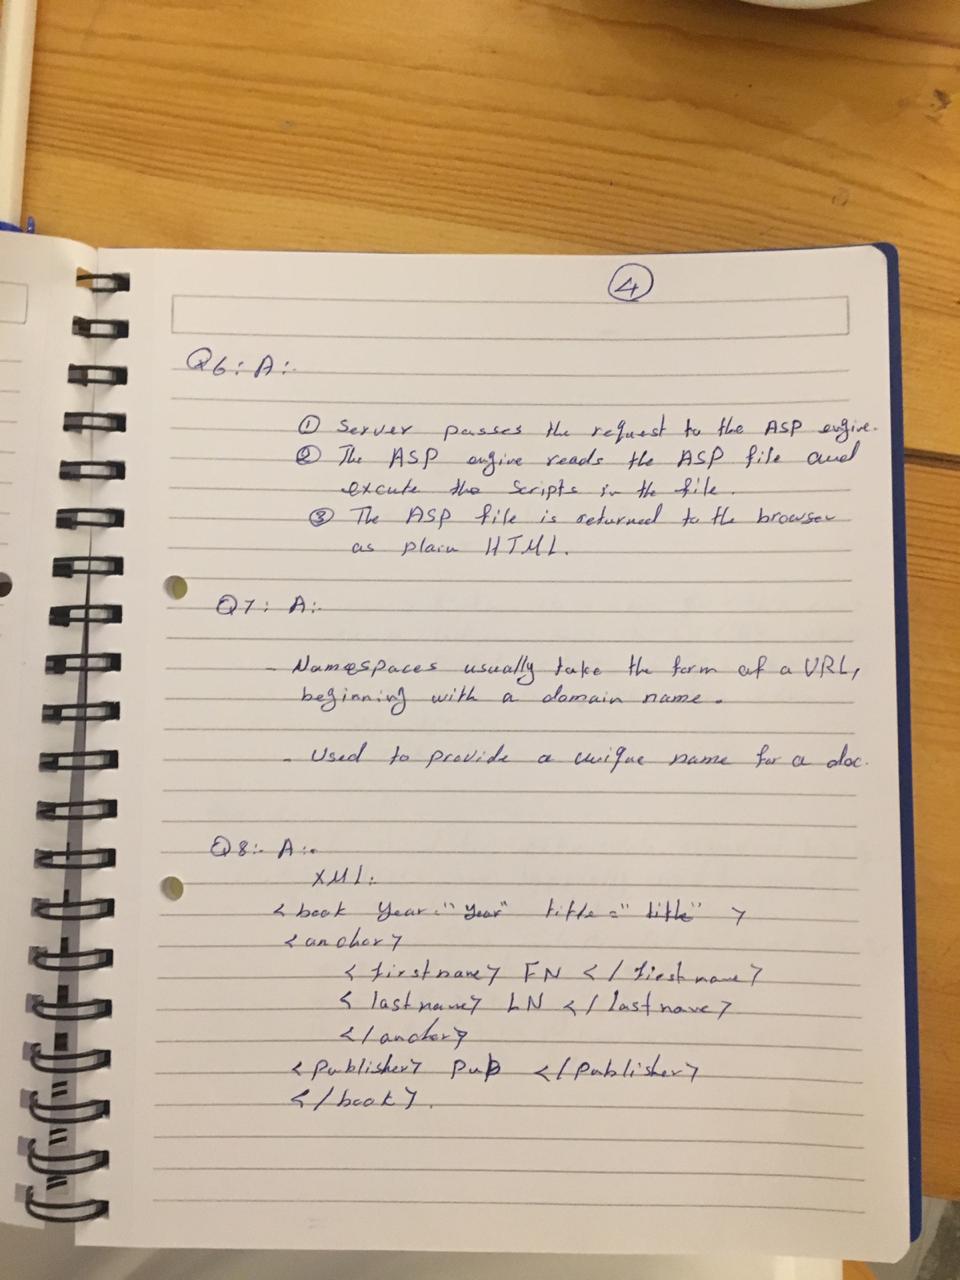 4
Q6: A:-
① Server passes the request to the ASP engine.
② The ASP engine reads the ASP file and
excute the scripts in the file.
③ The ASP file is returned to the browser
as plain HTML.
Q7: A:-
- Namespaces usually take the form of a URL,
beginning with a domain name.
- Used to provide a unique name for a doc.
Q8:- A:-
XML:
<book year="year" title="title" >
<anchor>
<firstname> FN </firstname>
<lastname> LN </lastname>
</anchor>
<publisher> pub </publisher>
</book>.